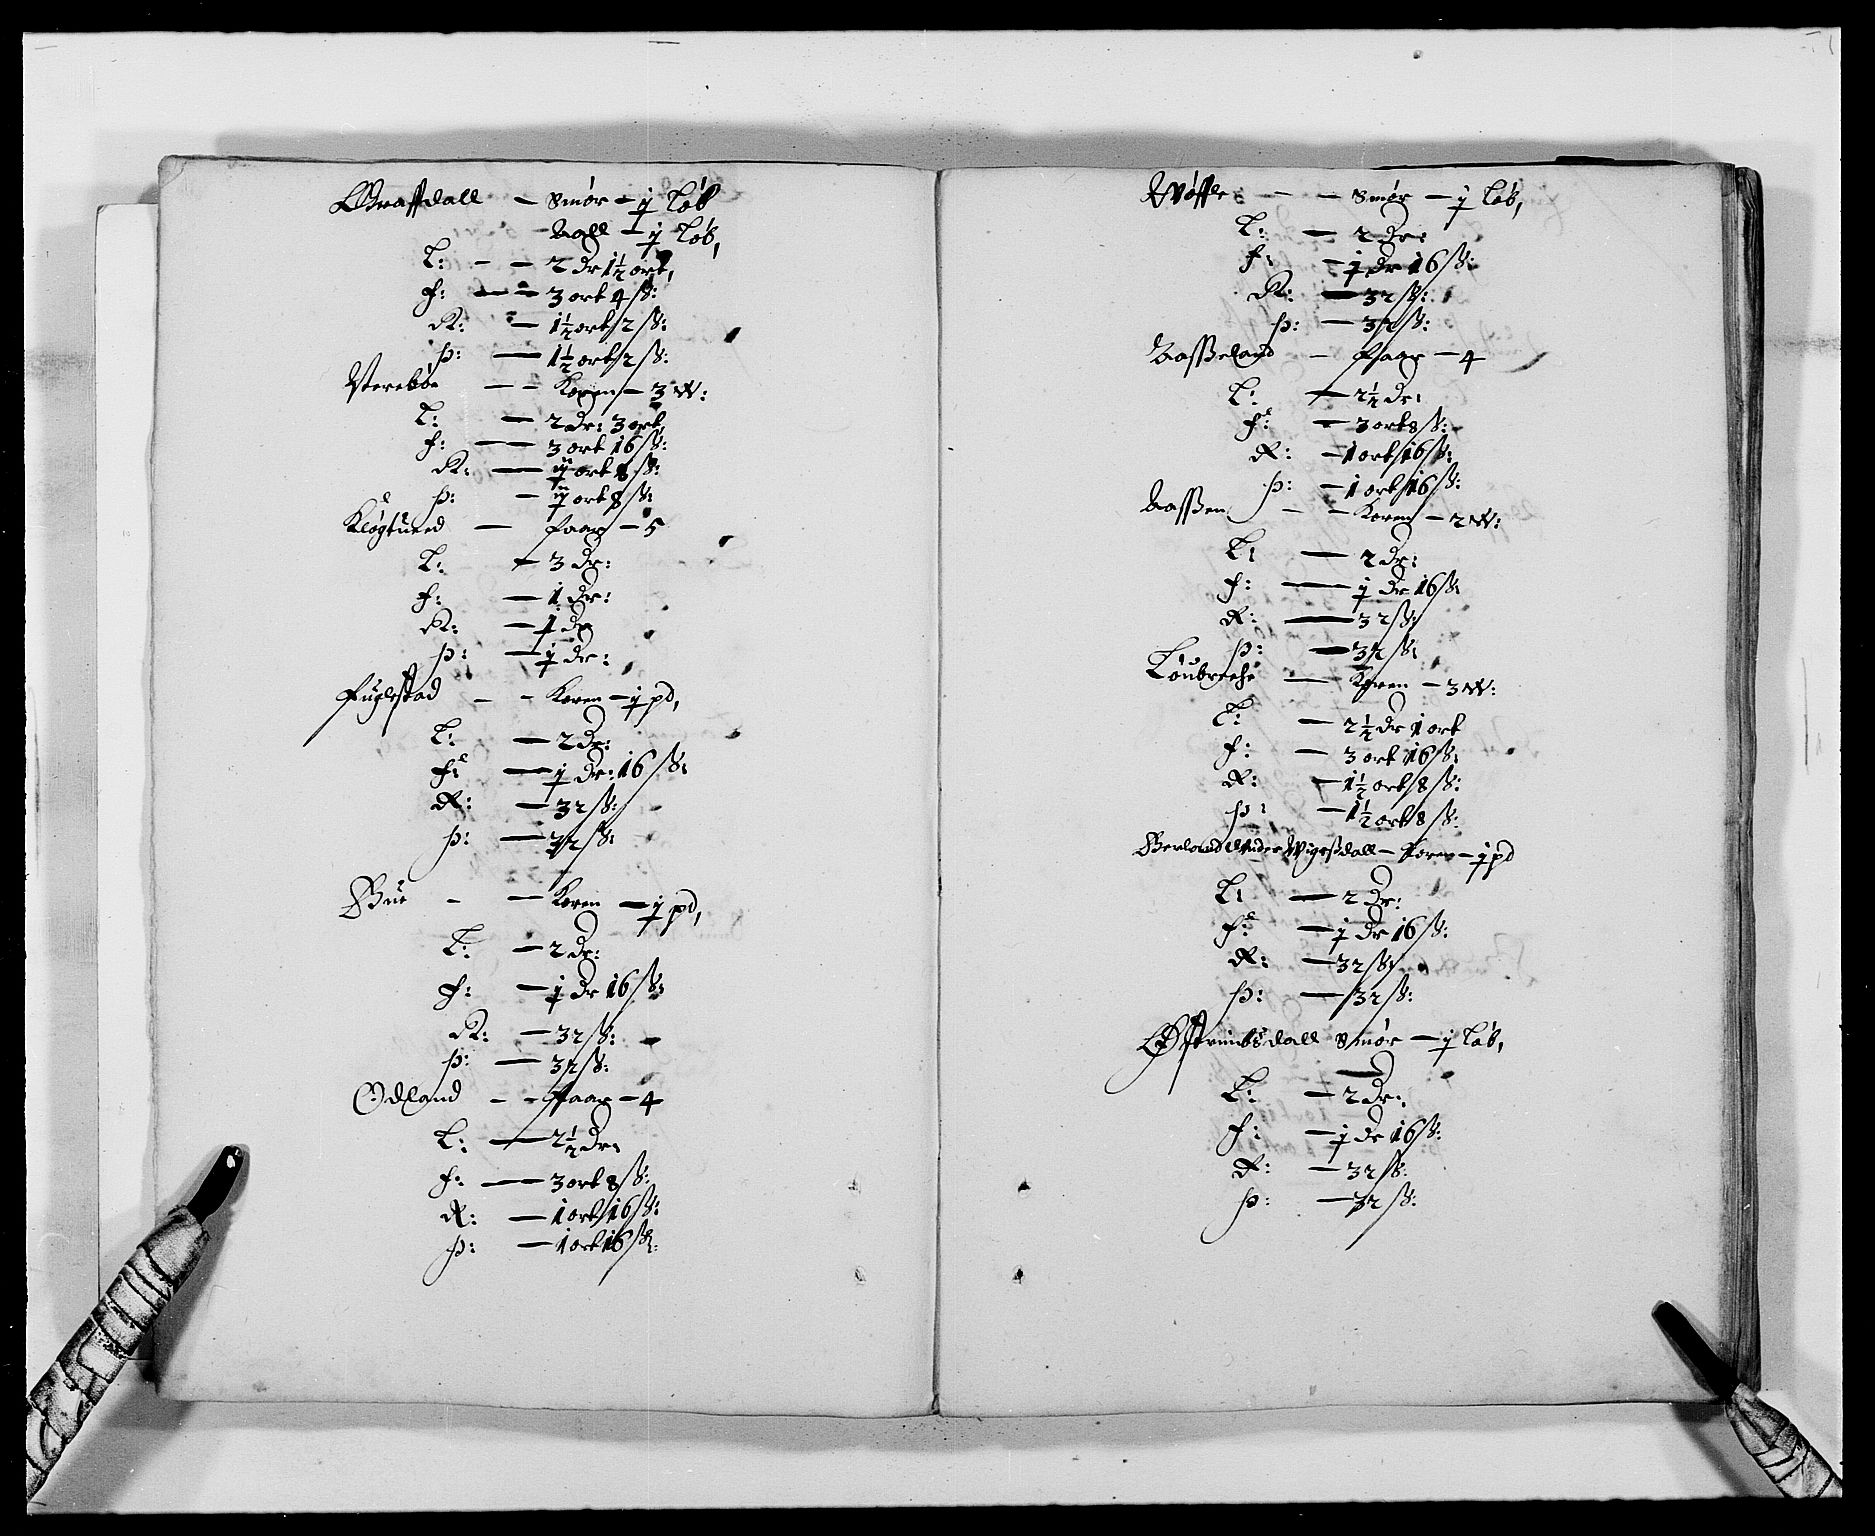 Graffdall – Smør – j Løb
– Aall – j Løb,
L: – – 2 dr 1½ ort,
f: – – 3 ort 4 ß:
K: – 1½ ort 2 ß:
þ: – 1½ ort 2 ß:
Verebøe – – Koren – 3 W:
L: – 2 dr: 3 ort,
f: – 3 ort 16 ß:
K: – ort 8 ß:
þ: – ort 8 ß:
Kløgtued – faar – 5
L: – 3 dr:
f: – 1 dr:
K: – j dr
þ: – j dr:
fuglestad – – Koren – j pd,
L: – 2 dr:
f: – j dr: 16 ß:
K: – 32 ß:
þ: – 32 ß:
Bue – – Koren – j pd,
L: – 2 dr:
f: – j dr 16 ß:
K: – 32 ß:
þ: – 32 ß:
Odland – – faar – 4
L: – 2½ dr:
f: – 3 ort 8 ß:
K: – 1 ort 16 ß:
þ: – 1 ort 16 ß:
– – Smør – j Løb,
L: – 2 dr:
f: – j dr 16 ß:
K: – 32 ß:
þ: – 32 ß:
Aasseland – faar – 4
L: – 2½ dr:
f: – 3 ort 8 ß:
K: – 1 ort 16 ß:
þ: – 1 ort 16 ß:
Aassen – – Koren – 2 W:
L: – 2 dr:
f: – j dr 16 ß:
K: – 32 ß:
þ: – 32 ß:
Løubreche – Koren – 3 W:
L: – 2½ dr 1 ort
f: – 3 ort 16 ß:
K: – 1½ ort 8 ß:
þ: – 1½ ort 8 ß:
Berland Under Wigeßdall – Koren – j pd
L: – 2 dr:
f: – j dr 16 ß:
K: – 32 ß:
þ: – 32 ß:
Smør – j Løb,
L: – 2 dr:
f: – j dr 16 ß:
K: – 32 ß:
þ: – 32 ß: